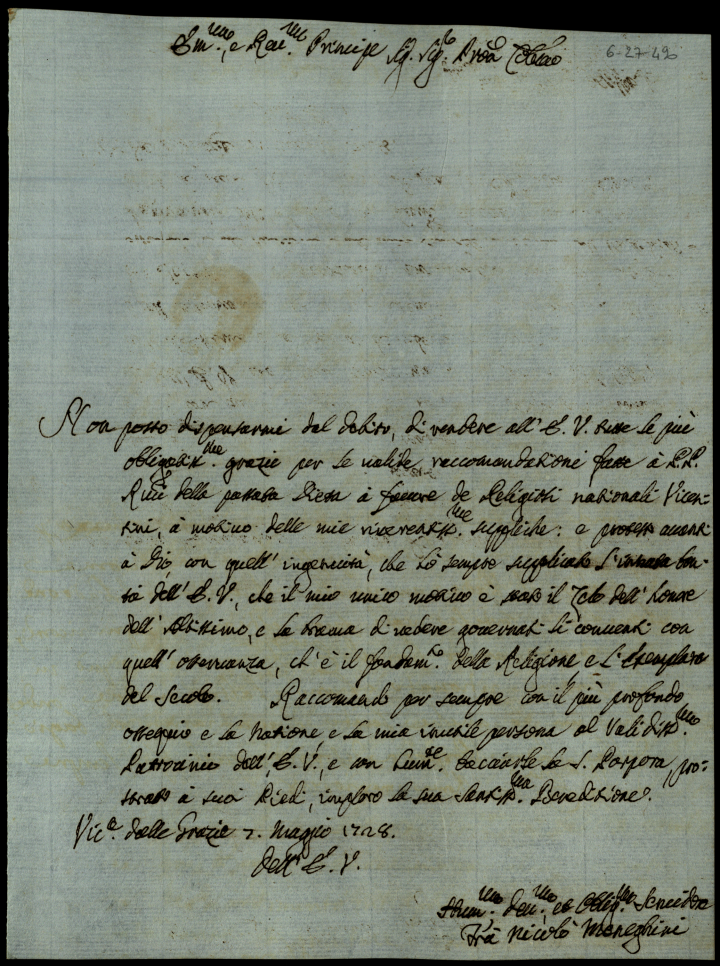 Em.mo, e Reu.mo Principe Sig. Sig.r Pron Colmo
6-27-49
Non posso dispensarmi dal debito, di rendere all' E. V. tutte le più
obligatiss.me grazie per le valide raccomandationi fatte à P.P.
della passata Dieta à fauore de Religiosi nationali Vicen-
tini, à motiuo delle mie riuerentiss.me suppliche: e protesto auanti
à Dio con quell' ingenuità, che hò sempre supplicato l' innata bon-
tà dell' E. V., che il mio unico motiuo è stato il Zelo dell' honore
dell' Altissimo, e la brama di vedere gouernati li conuenti con
quell' osseruanza, ch' è il fondam.to della Religione e l' esemplare
del Secolo. Raccomando per sempre con il più profondo
ossequio e la Natione e la mia inutile persona al Validiss.mo
Patrocinio dell' E. V., e con hum.te bacciarle la S. Porpora, pro-
strato à suoi Piedi, imploro la sua Santiss.ma Beneditione.
Vic.a dalle Grazie 7. Maggio 1728.
Dell' E. V.
Hum.mo Deu.mo, et Oblig.mo Seruidore
Frà Nicolò Meneghini